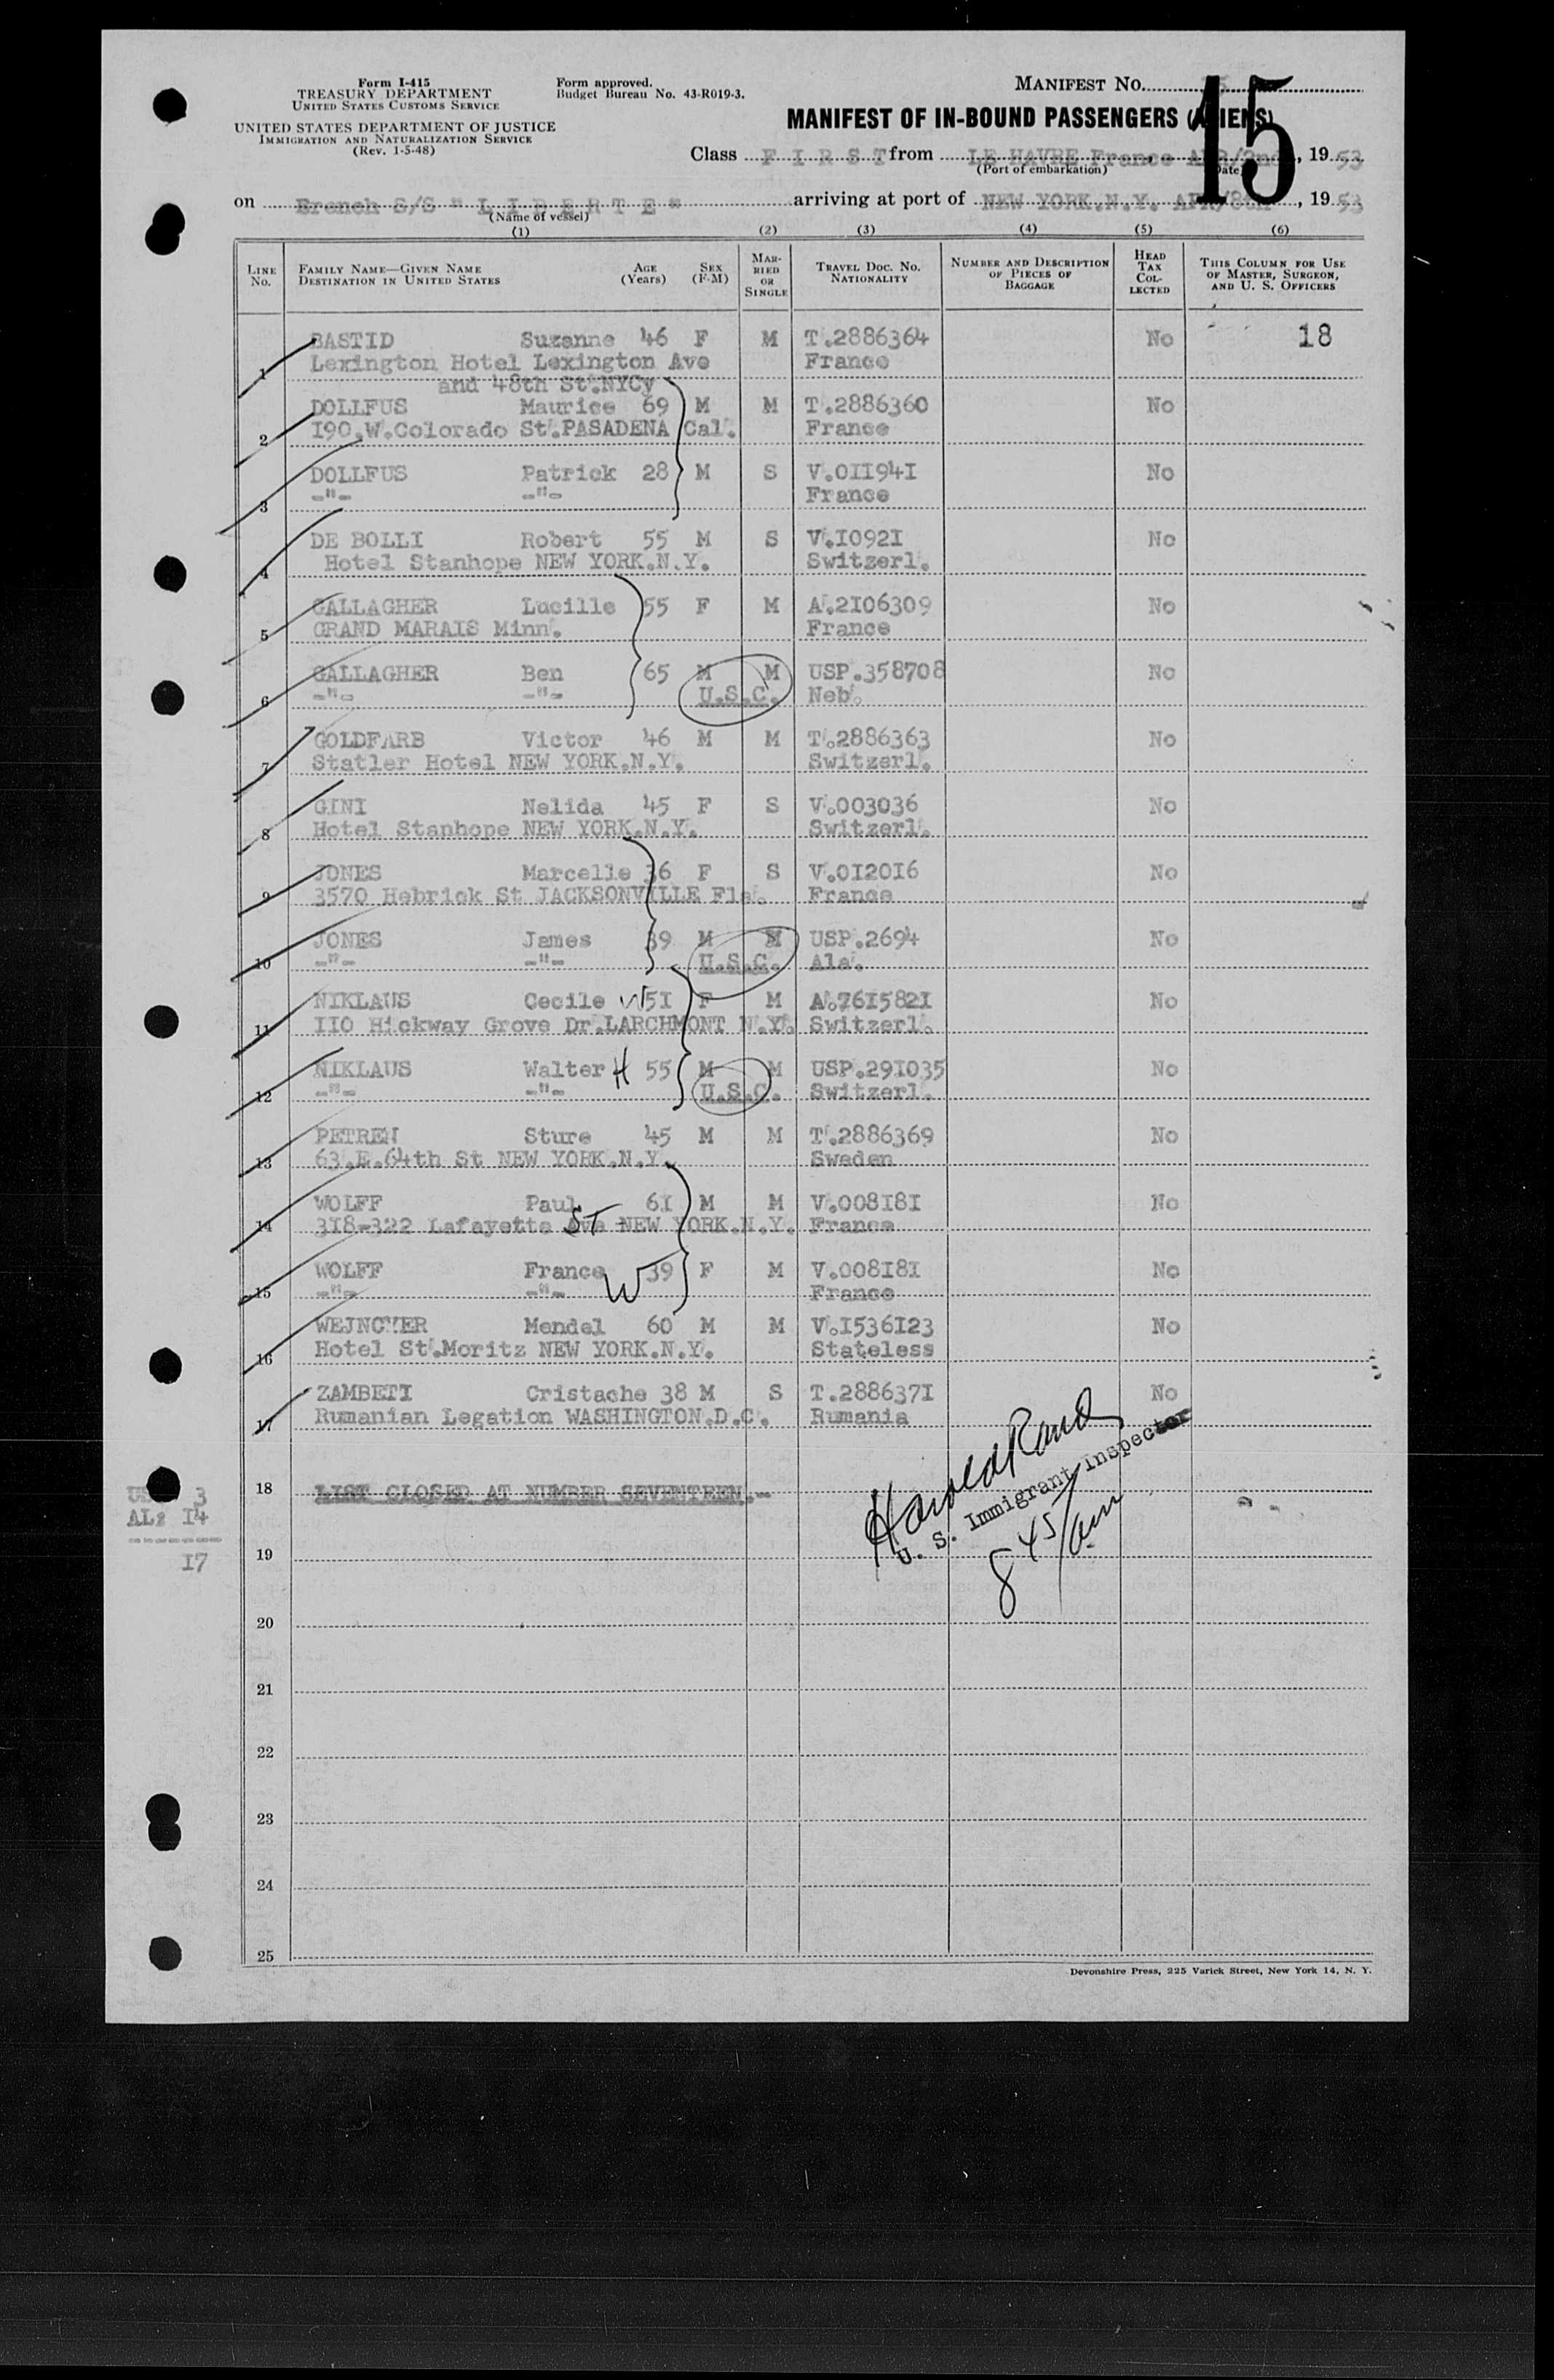 Form I-415
TREASURY DEPARTMENT
UNITED STATES CUSTOMS SERVICE
UNITED STATES DEPARTMENT OF JUSTICE
IMMIGRATION AND NATURALIZATION SERVICE
(Rev. 1-5-48)
Form approved.
Budget Bureau No. 43-R019-3.
MANIFEST No.
15
MANIFEST OF IN-BOUND PASSENGERS (ALIENS)
Class F I R S T from LE HAVRE France APR/2nd, 19 53
(Port of embarkation) (Date)
on French S/S " L I B E R T E " arriving at port of NEW YORK.N.Y. APR/8th, 19 53
(Name of vessel)
(1) (2) (3) (4) (5) (6)
LINE No. FAMILY NAME—GIVEN NAME DESTINATION IN UNITED STATES AGE (Years) SEX (F-M) MARRIED OR SINGLE TRAVEL DOC. NO. NATIONALITY NUMBER AND DESCRIPTION OF PIECES OF BAGGAGE HEAD TAX COLLECTED THIS COLUMN FOR USE OF MASTER, SURGEON, AND U. S. OFFICERS
BASTID Suzanne 46 F M T.2886364 No 18
1 Lexington Hotel Lexington Ave France
and 48th St.NYCy
DOLLFUS Maurice 69 M M T.2886360 No
2 I90.W.Colorado St.PASADENA Cal. France
DOLLFUS Patrick 28 M S V.0II94I No
3 -"- -"- France
DE BOLLI Robert 55 M S V.I092I No
4 Hotel Stanhope NEW YORK.N.Y. Switzerl.
GALLAGHER Lucille 55 F M A.2I06309 No
5 GRAND MARAIS Minn. France
GALLAGHER Ben 65 M M USP.358708 No
6 -"- -"- U.S.C. Neb.
GOLDFARB Victor 46 M M T.2886363 No
7 Statler Hotel NEW YORK.N.Y. Switzerl.
GINI Nelida 45 F S V.003036 No
8 Hotel Stanhope NEW YORK.N.Y. Switzerl.
JONES Marcelle 36 F S V.0I20I6 No
9 3570 Hebrick St JACKSONVILLE Fla. France
JONES James 39 M M USP.2694 No
10 -"- -"- U.S.C. Ala.
NIKLAUS Cecile 5I F M A.76I582I No
11 II0 Hickway Grove Dr.LARCHMONT N.Y. Switzerl.
NIKLAUS Walter H 55 M M USP.29I035 No
12 -"- -"- U.S.C. Switzerl.
PETREN Sture 45 M M T.2886369 No
13 63.E.64th St NEW YORK.N.Y. Sweden
WOLFF Paul 6I M M V.008I8I No
14 3I8-322 Lafayette Ave ST NEW YORK.N.Y. France
WOLFF France W 39 F M V.008I8I No
15 -"- -"- France
Mendel 60 M M V.I536I23 No
16 Hotel St.Moritz NEW YORK.N.Y. Stateless
ZAMBETI Cristache 38 M S T.288637I No
17 Rumanian Legation WASHINGTON.D.C. Rumania
18 LIST CLOSED AT NUMBER SEVENTEEN.-
3
AL: I4
I7
Harold
U. S. Immigrant Inspector
8 45/am
19
20
21
22
23
24
25
Devonshire Press, 225 Varick Street, New York 14, N. Y.